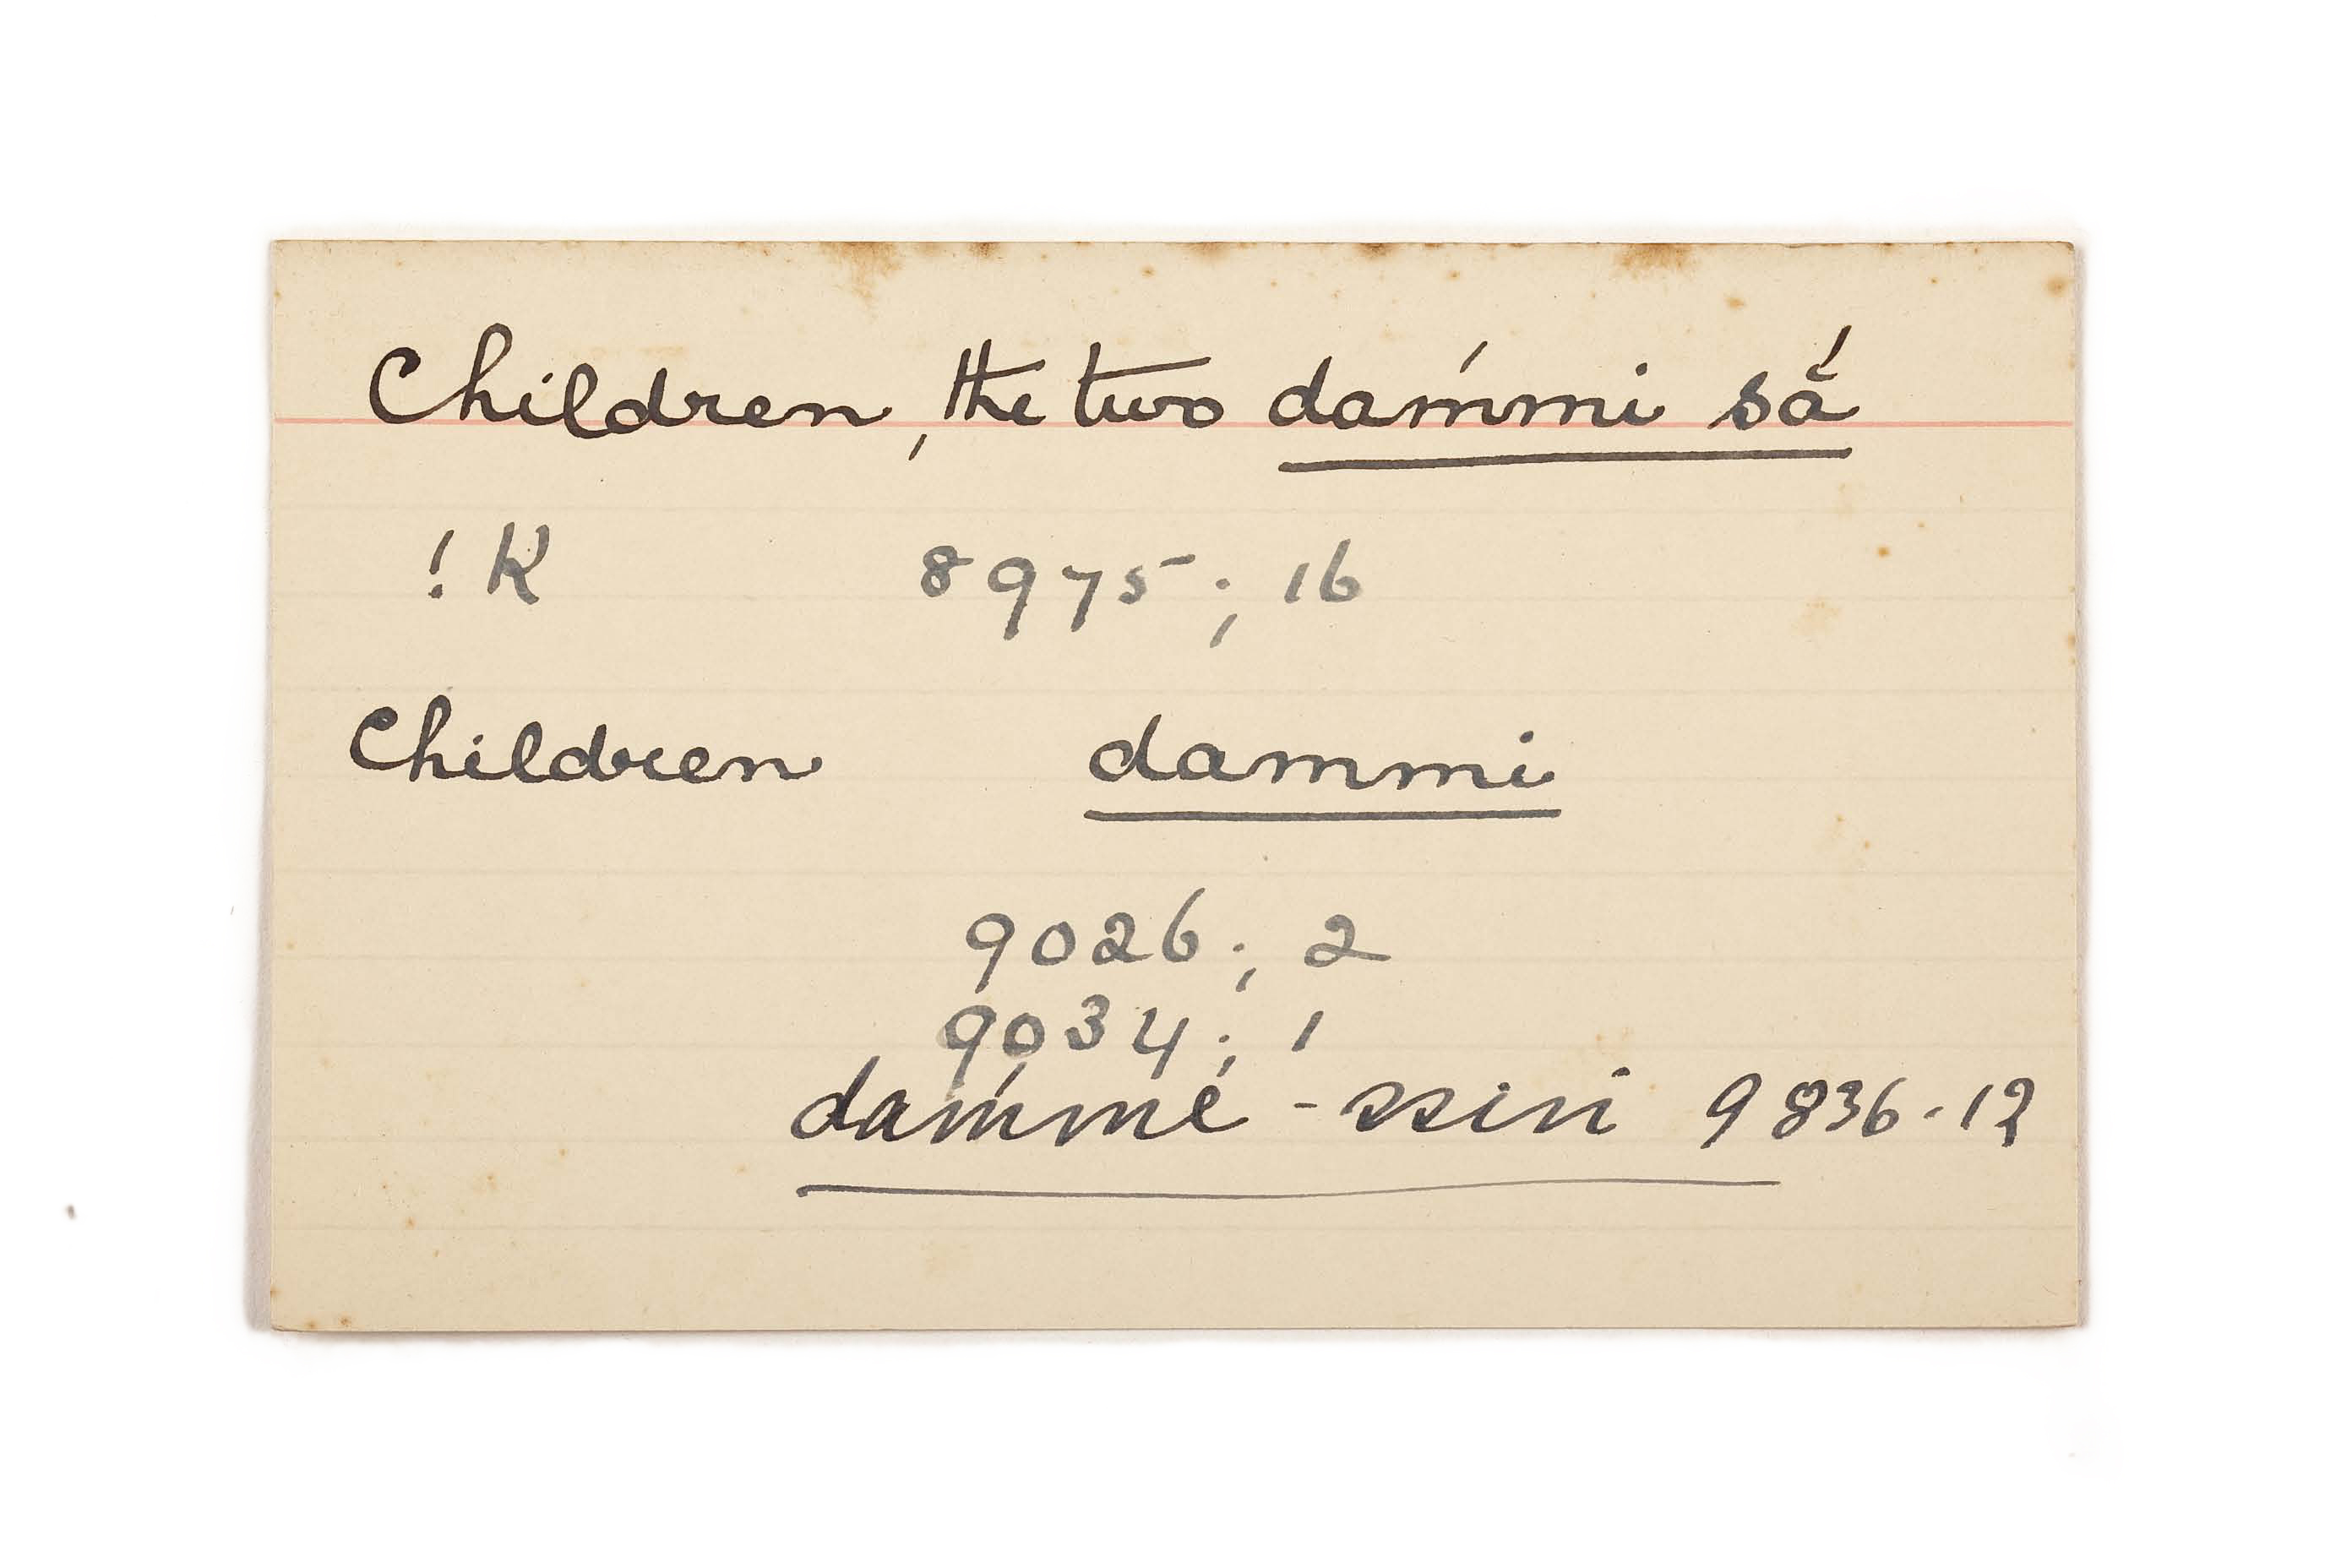 Children, the two daḿmi sā́
!K 8975; 16
Children dammi
9026; 2
9034; 1
daḿmé - ssiri 9836-12